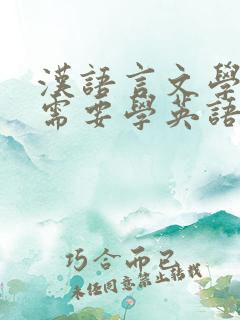 漢語言文學
需要學英語
巧合而已
未經同意禁止轉載